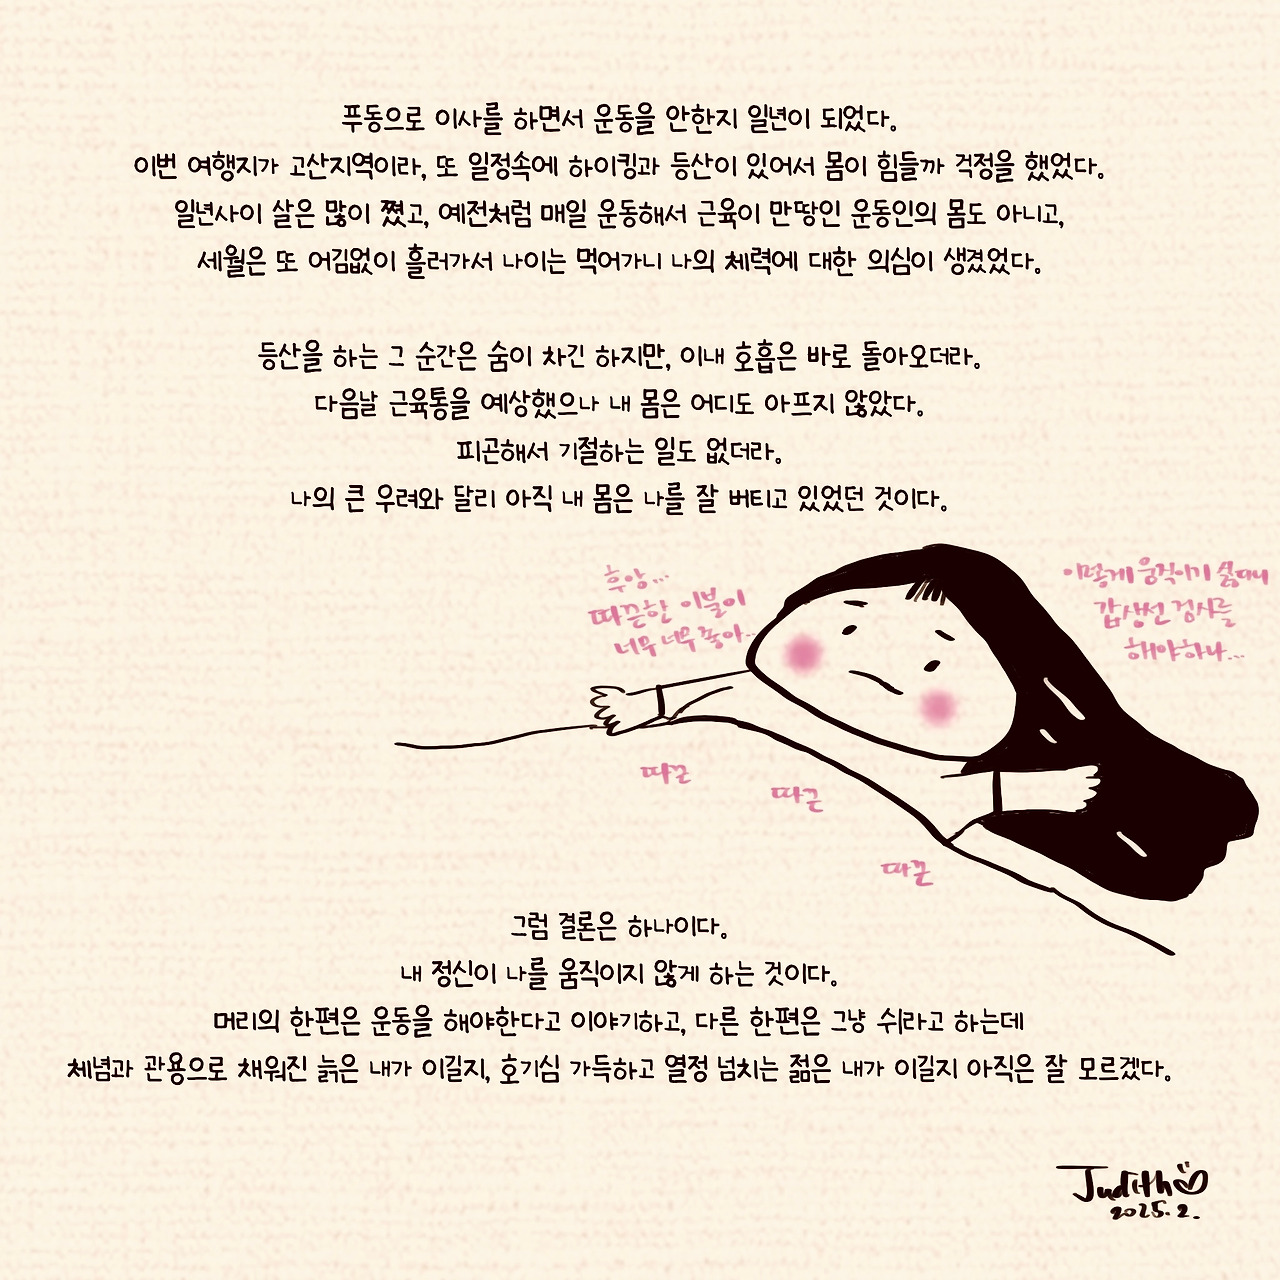 푸동으로 이사를 하면서 운동을 안한지 일년이 되었다.
이번 여행지가 고산지역이라, 또 일정속에 하이킹과 등산이 있어서 몸이 힘들까 걱정을 했었다.
일년사이 살은 많이 쪘고, 예전처럼 매일 운동해서 근육이 만땅인 운동인의 몸도 아니고,
세월은 또 어김없이 흘러가서 나이는 먹어가니 나의 체력에 대한 의심이 생겼었다.
등산을 하는 그 순간은 숨이 차긴 하지만, 이내 호흡은 바로 돌아오더라.
다음날 근육통을 예상했으나 내 몸은 어디도 아프지 않았다.
피곤해서 기절하는 일도 없더라.
나의 큰 우려와 달리 아직 내 몸은 나를 잘 버티고 있었던 것이다.
후앙...
따끈한 이불이
너무 너무 좋아...
이렇게 움직이기 싫다니
갑상선 검사를
해야하나...
따끈
따끈
따끈
그럼 결론은 하나이다.
내 정신이 나를 움직이지 않게 하는 것이다.
머리의 한편은 운동을 해야한다고 이야기하고, 다른 한편은 그냥 쉬라고 하는데
체념과 관용으로 채워진 늙은 내가 이길지, 호기심 가득하고 열정 넘치는 젊은 내가 이길지 아직은 잘 모르겠다.
Judith
2025. 2.